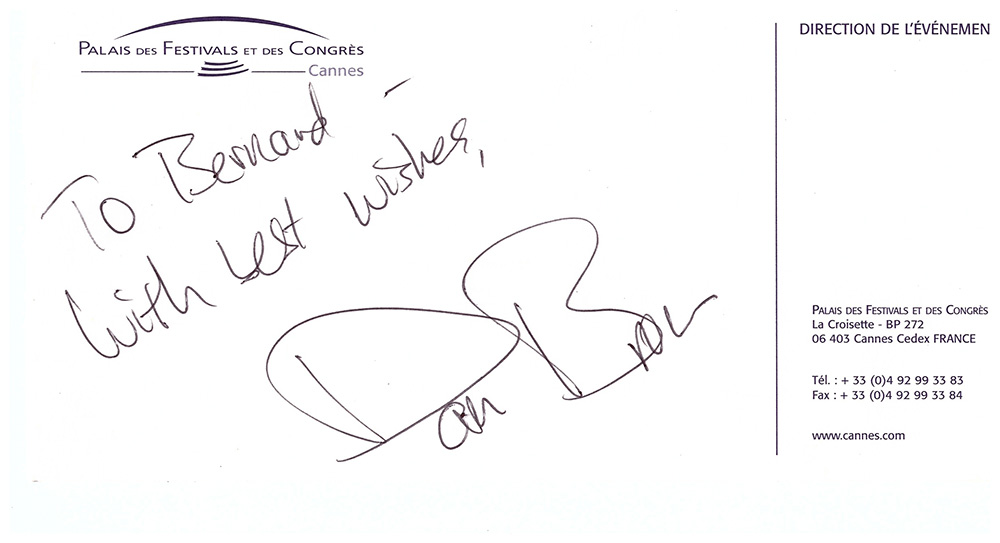 PALAIS DES FESTIVALS ET DES CONGRÈS
Cannes
To Bernard -
With best wishes,
Dan Brown
DIRECTION DE L'ÉVÉNEMEN
PALAIS DES FESTIVALS ET DES CONGRÈS
La Croisette - BP 272
06 403 Cannes Cedex FRANCE
Tél. : + 33 (0)4 92 99 33 83
Fax : + 33 (0)4 92 99 33 84
www.cannes.com